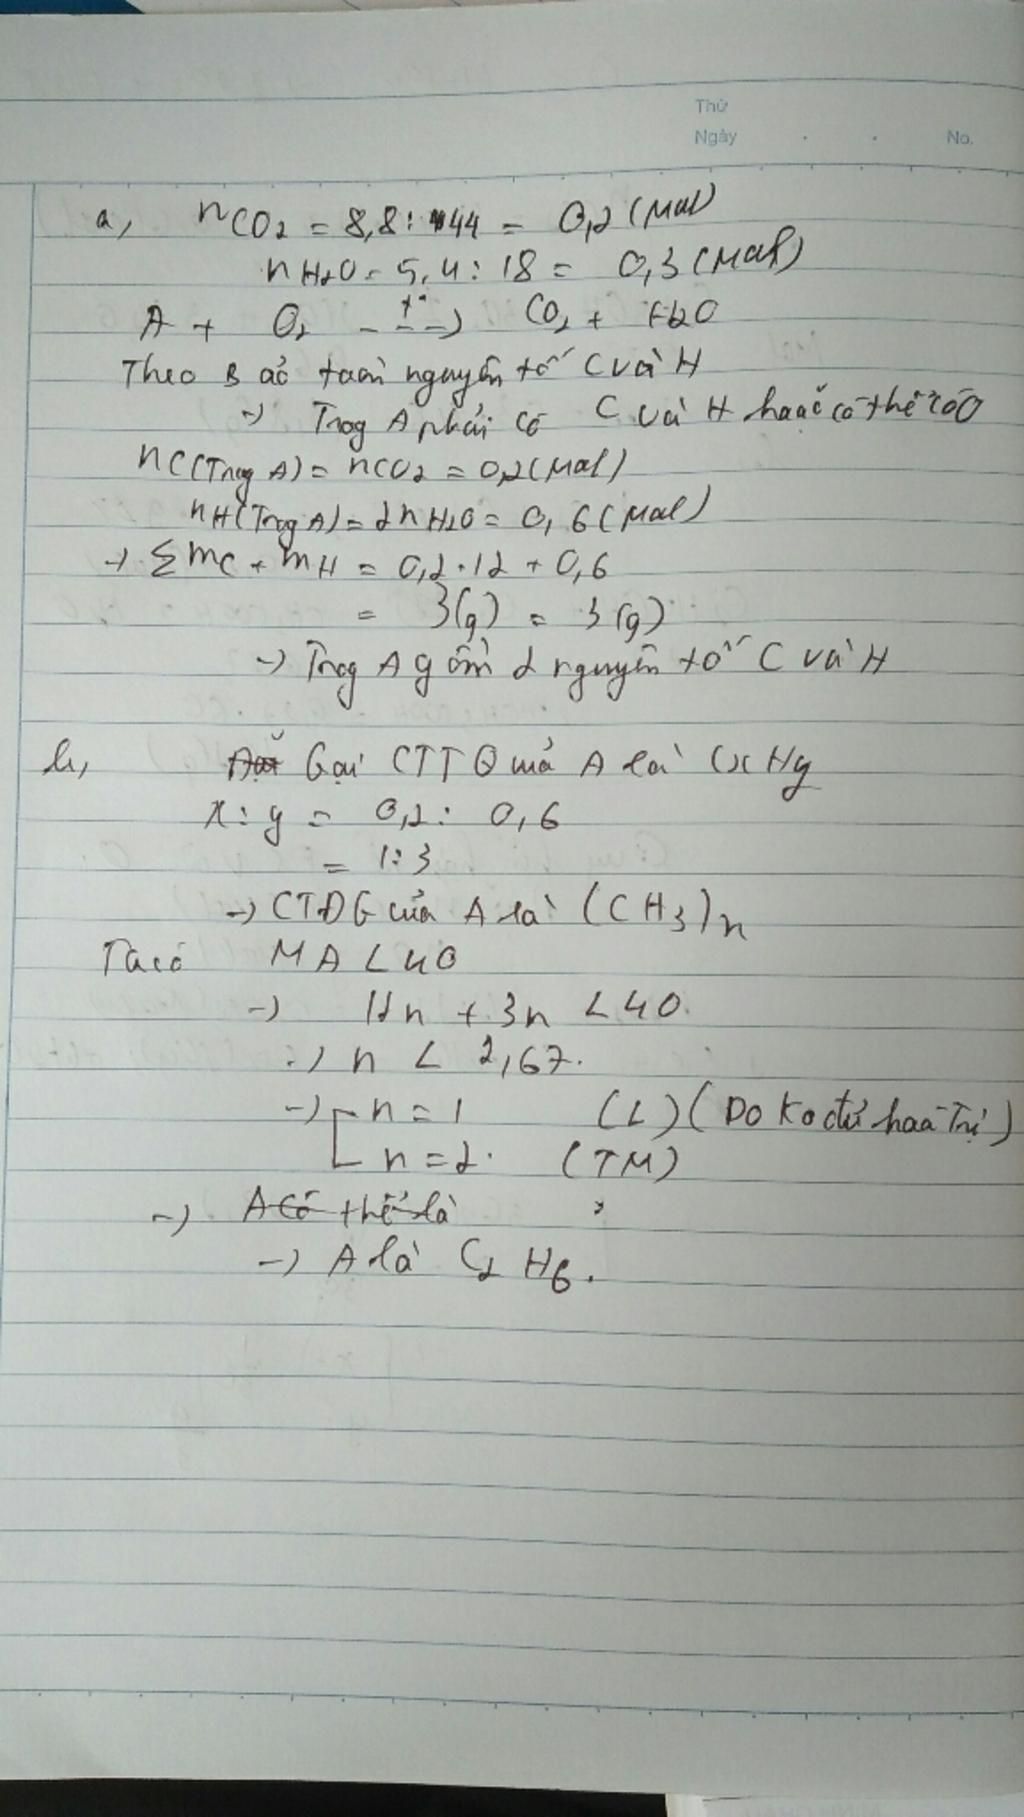 Thứ
Ngày . . No.
a, nCO2 = 8,8 : 44 = 0,2 (Mol)
nH2O = 5,4 : 18 = 0,3 (Mol)
A + O2 ---t°--> CO2 + H2O
Theo Bảo toàn nguyên tố C và H
-> Trog A phải có C và H hoặc có thể có O
nC(Trog A) = nCO2 = 0,2 (Mol)
nH(Trog A) = 2nH2O = 0,6 (Mol)
-> ΣmC + mH = 0,2.12 + 0,6
= 3(g) = 3(g)
-> Trog A gồm 2 nguyên tố C và H
b, Gọi CTTQ của A là CxHy
x : y = 0,2 : 0,6
= 1:3
-> CTĐG của A là (CH3)n
Ta có MA < 40
-> 12n + 3n < 40.
-> n < 2,67.
-> [ n = 1 (L) (Do Ko đủ hoá Trị)
n = 2. (TM)
-> A có thể là
-> A là C2H6.